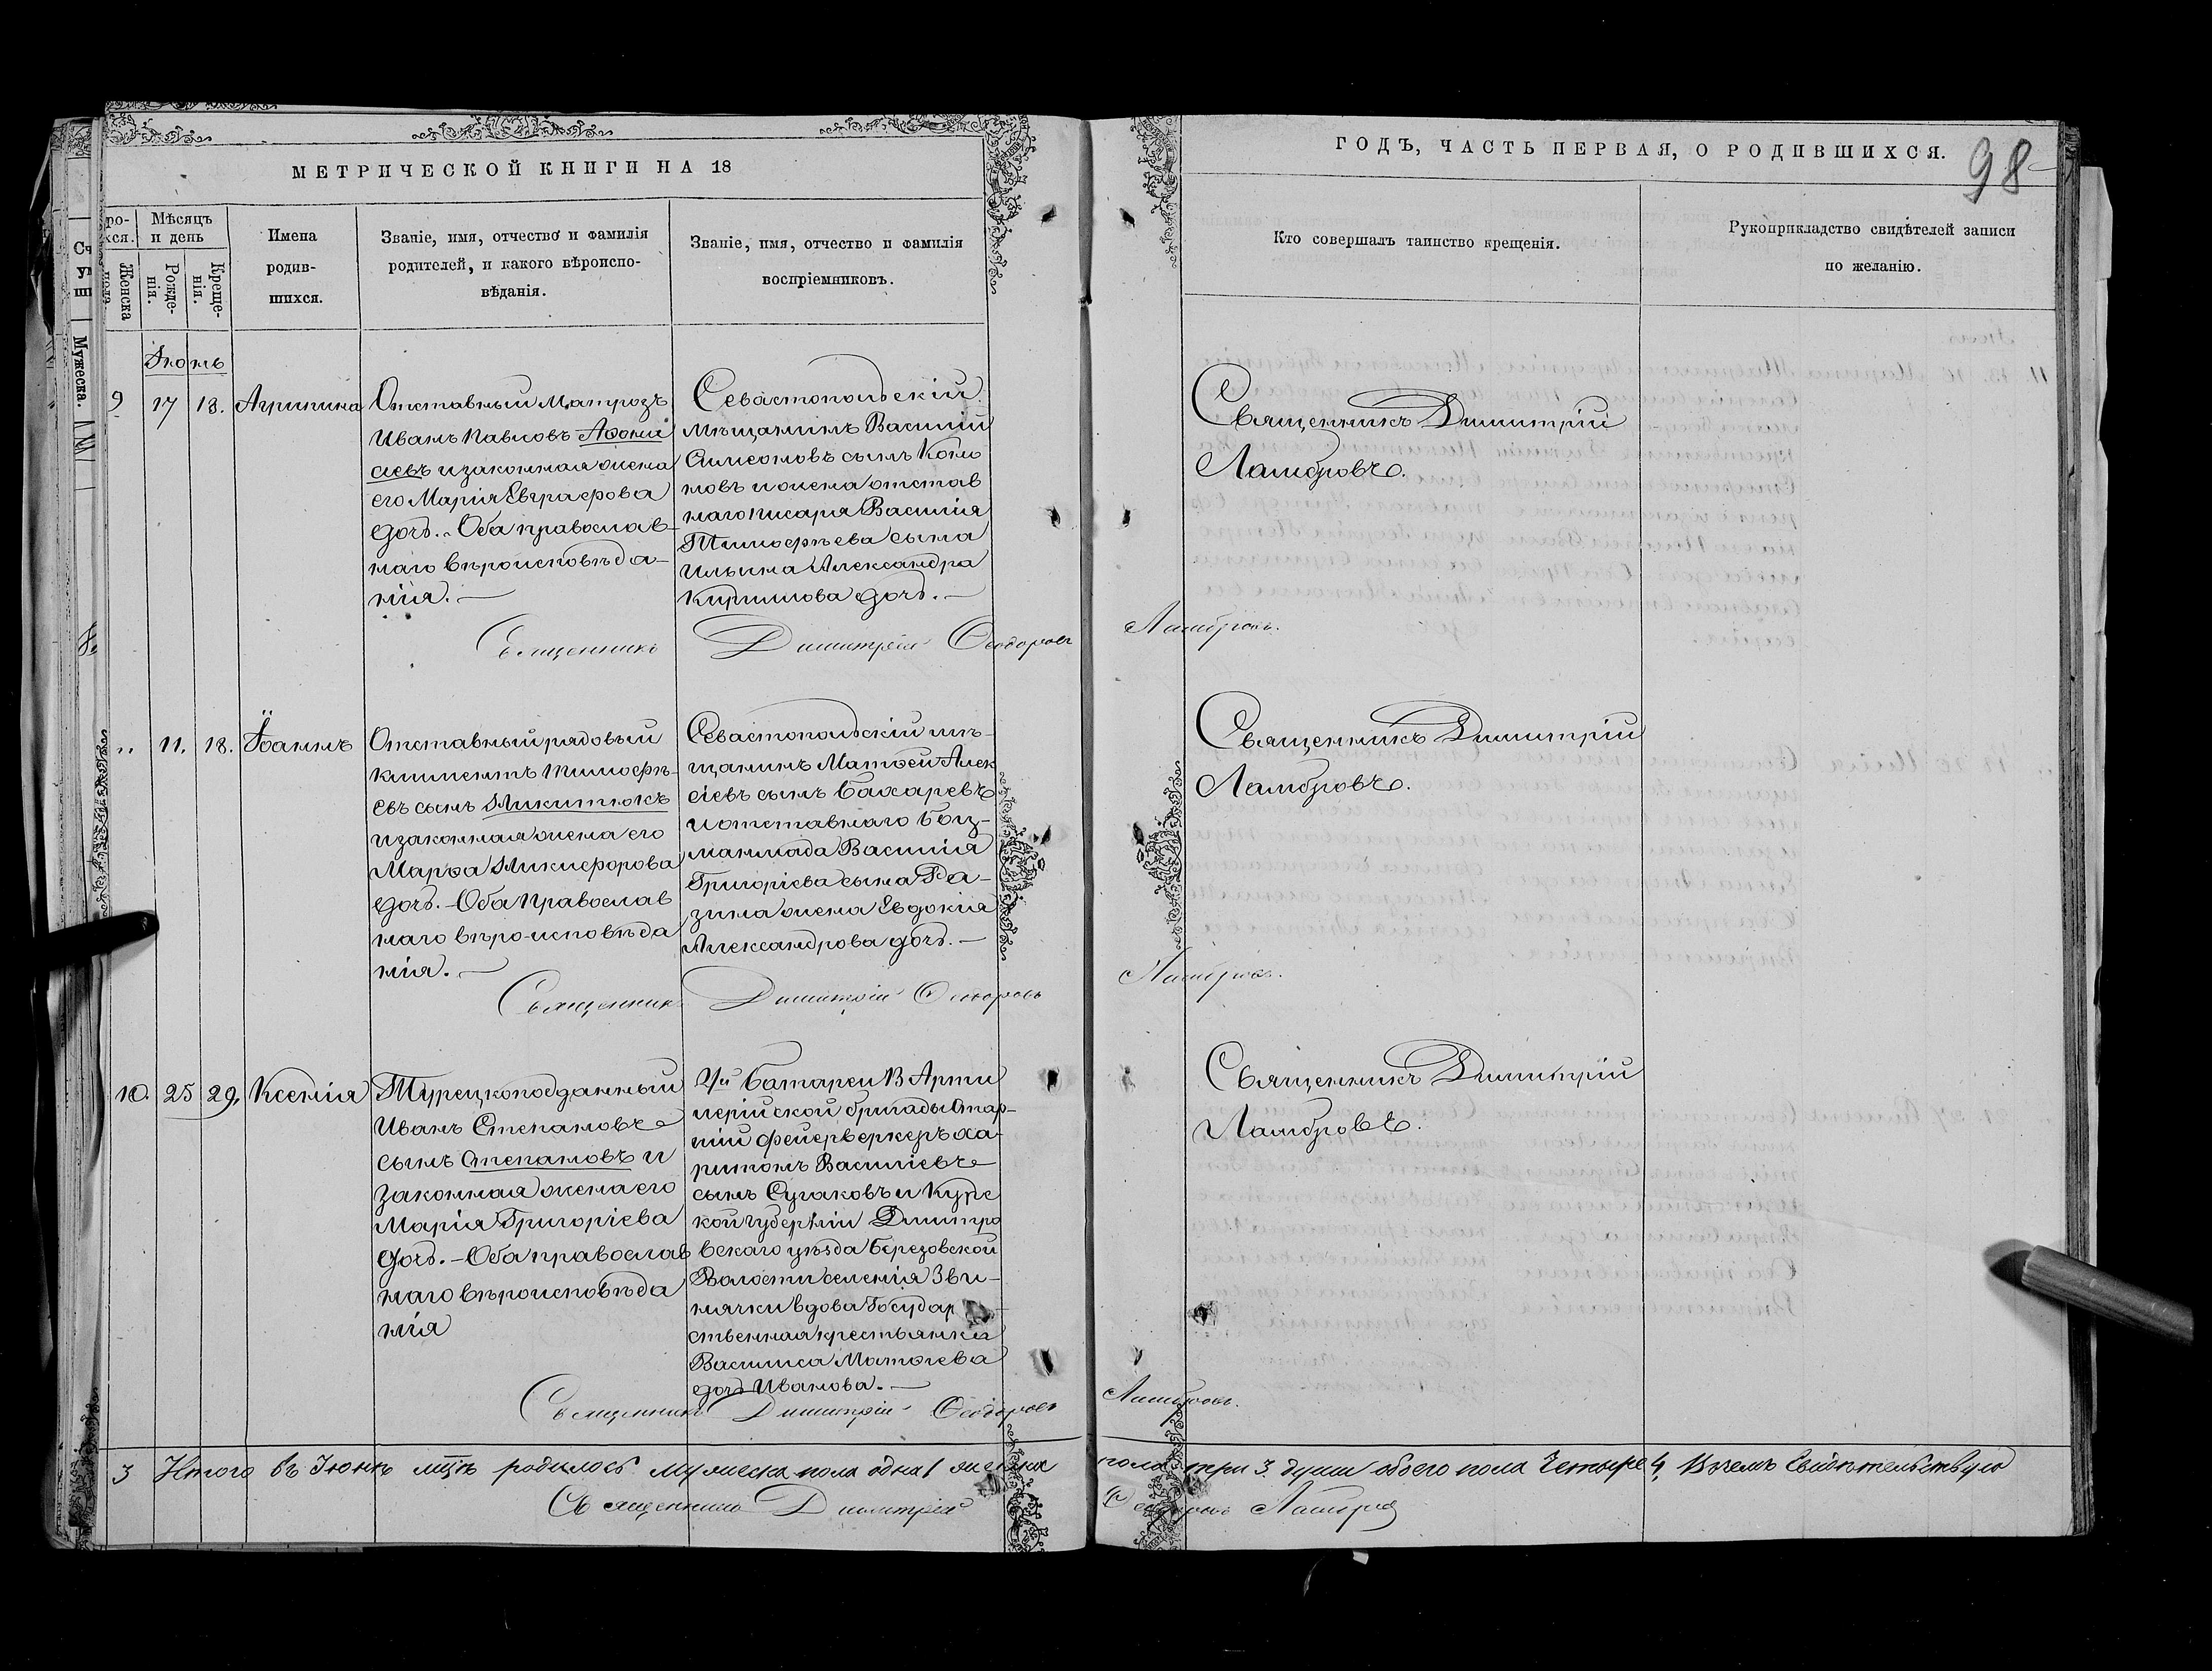 МЕТРИЧЕСКОЙ КНИГИ НА 18
ГОДЪ, ЧАСТЬ ПЕРВАЯ, О РОДИВШИХСЯ.
98
Мѣсяцъ
и день
Женска
Рожде-
нія.
Креще-
нія.
Имена
родив-
шихся.
Званіе, имя, отчество и фамилія
родителей, и какого вѣроиспо-
вѣданія.
Званіе, имя, отчество и фамилія
воспріемниковъ.
Кто совершалъ таинство крещенія.
Рукоприкладство свидѣтелей записи
по желанію.
Мужеска.
Іюнь
9 17 18. Агрипина
Отставный матрозъ
Иванъ Павловъ Афона
сіевъ и законная жена
его Марія Евграфова
дочь. - Оба православ-
наго вѣроисповѣда-
нія. -
Севастопольскій
мѣщанинъ Василій
Симеоновъ сынъ Коно
новъ и жена отстав
наго писаря Василія
Тимофѣева сына
Ильина Александра
Кирилова дочь. -
Священникъ Димитрій
Ламбровъ.
Священникъ Димитрій Ѳеодоровъ Ламбровъ.
" 11. 18. Іоаннъ
Отставный рядовый
Климентъ Тимофѣ-
евъ сынъ Никитюкъ
и законная жена его
Марѳа Никифорова
дочь. - Оба православ
наго вѣроисповѣда
нія. -
Севастопольскій мѣ-
щанинъ Матѳей Алек
сіевъ сынъ Бахаревъ
и отставнаго Боц-
манмата Василія
Григоріева сына Ра-
зина жена Евдокія
Александрова дочь. -
Священникъ Димитрій
Ламбровъ.
Священникъ Димитрій Ѳеодоровъ Ламбровъ.
10. 25 29. Ксенія
Турецкоподданный
Иванъ Степановъ
сынъ Степановъ и
законная жена его
Марія Григоріева
дочь. - Оба православ
наго вѣроисповѣда
нія
Батареи 13 Арти
лерійской бригады Стар-
шій фейерверкеръ Ха-
ритонъ Василіевъ
сынъ Сугаковъ и Курс
кой губерніи Димитро
вскаго уѣзда Березовской
Волости селенія Зви-
нячки вдова Государ
ственная крестьянка
Василиса Матѳіева
дочь Иванова. -
Священникъ Димитрій
Ламбровъ.
Священникъ Димитрій Ѳеодоровъ Ламбровъ.
3 Итого въ Іюнѣ мцѣ родилось мужеска пола одна 1 женска пола три 3. души обоего пола Четыре 4, Въ чемъ Свидѣтельствую
Священникъ Димитрій Ѳеодоровъ Ламбровъ